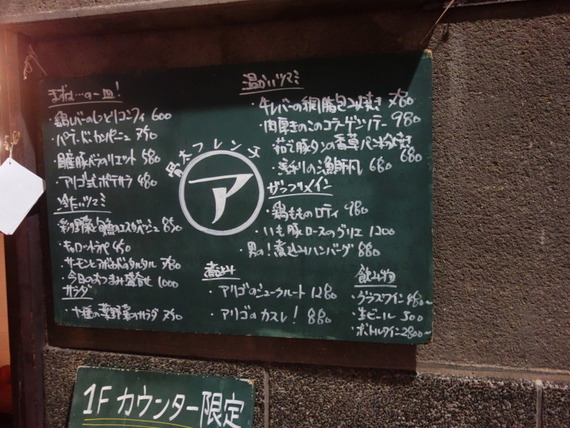 まずは…の一皿!
・鶏レバーのしっとりコンフィ 600
・パテ・ド・カンパーニュ 750
豚バラのリエット 580
・アリゴ式ポテサラ 480
冷たいツマミ
彩り野菜と 850
・キャロットラペ 450
・サーモンとアボカドのタルタル 780
・今日のおつまみ盛合せ 1000
サラダ
・十種の葉野菜のサラダ 750
フレンチ
ア
温かいツマミ
・牛レバーの網脂包み焼き 780
・肉厚きのこのコラーゲンソテー 980
豚タンの香草パン粉焼き 680
680
ザックリメイン
・鶏もものロティ 980
・いも豚ロースのグリエ 1200
・男の!煮込みハンバーグ 880
煮込み
・アリゴのシュークルート 1280
・アリゴのカスレ! 880
飲み物
・グラスワイン 480~
・生ビール 500
・ボトルワイン 2800~
1Fカウンター限定